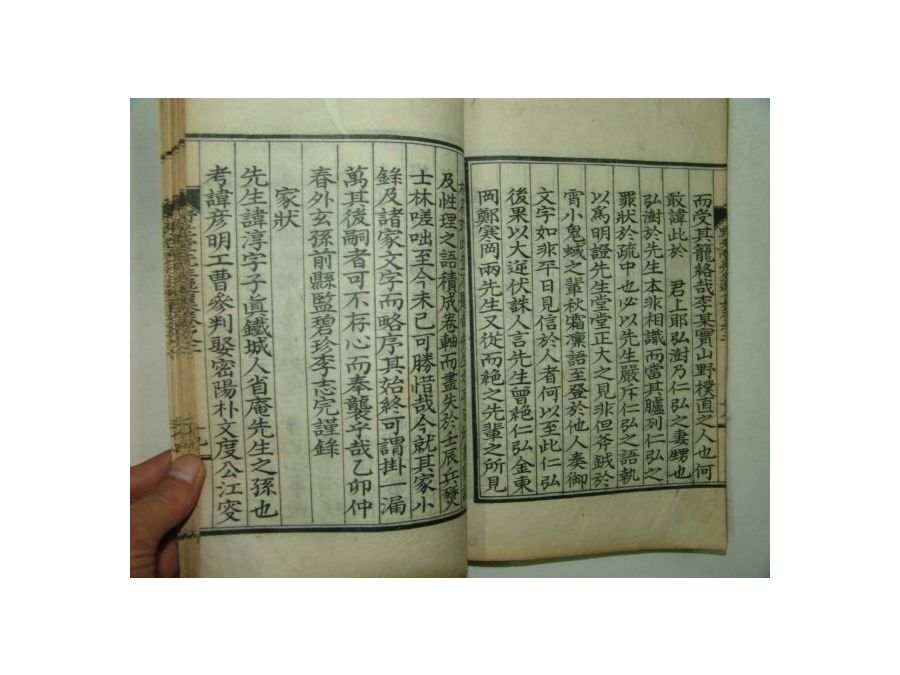 而受其籠絡哉李某實山野樸直之人也何
敢諱此於 君上耶弘澍乃仁弘之妻甥也
弘澍於先生本非相識而當其臚列仁弘之
罪狀於疏中也必以先生嚴斥仁弘之語執
以爲明證先生堂堂正大之見非但斧鉞於
宵小鬼蜮之輩秋霜凜語至登於他人奏御
文字如非平日見信於人者何以至此仁弘
後果以大逆伏誅人言先生曾絶仁弘金東
岡鄭寒岡兩先生又從而絶之先輩之所見
及性理之語積成卷軸而盡失於壬辰兵燹
士林嗟咄至今未已可勝惜哉今就其家小
錄及諸家文字而略序其始終可謂掛一漏
萬其後嗣者可不存心而奉襲乎哉乙卯仲
春外玄孫前縣監碧珍李志完謹錄
家狀
先生諱淳字子眞鐵城人省庵先生之孫也
考諱彦明工曹參判娶密陽朴文度公江突